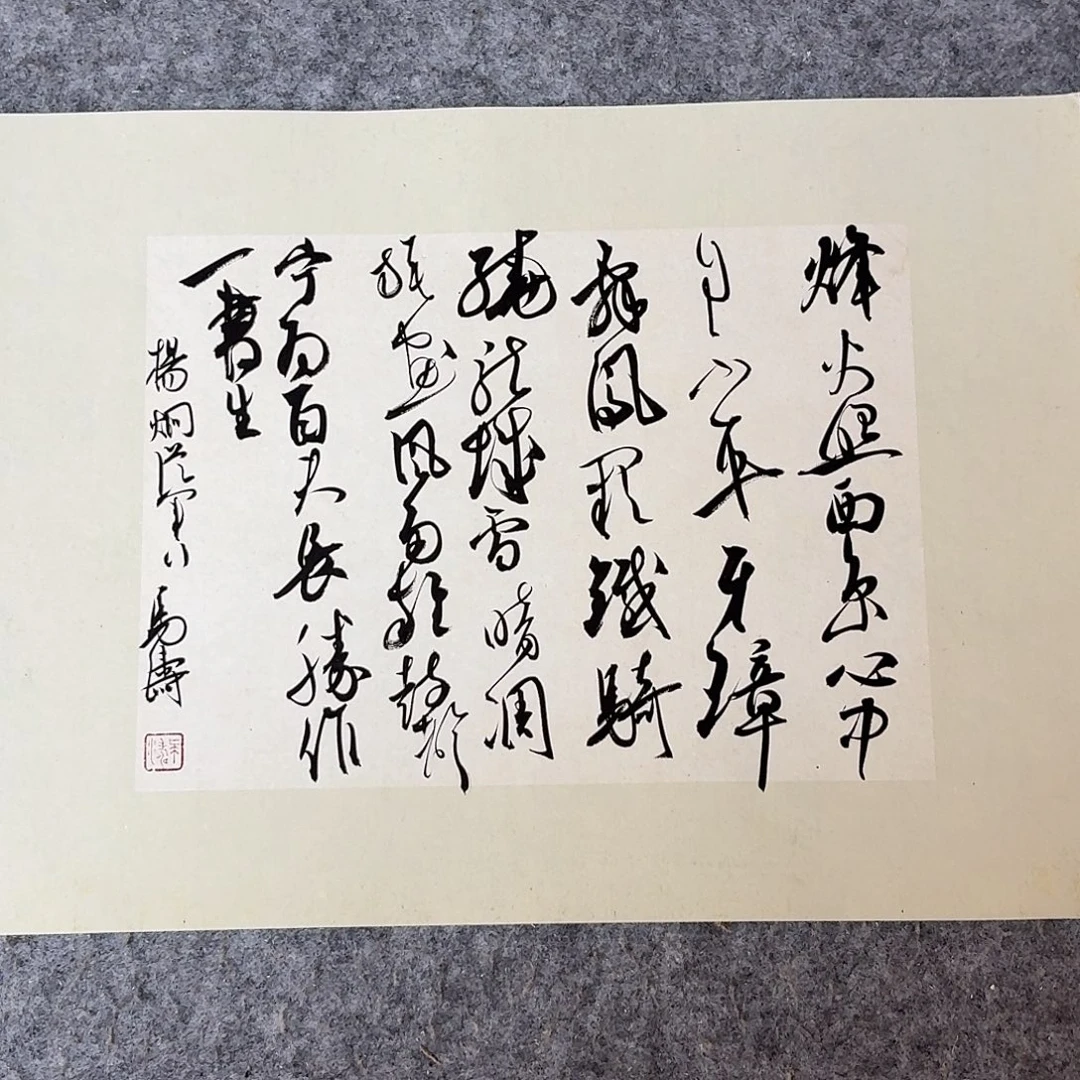 烽火照西京心中
自不平牙璋
辭鳳闕鐵騎
繞龍城雪暗凋
旗畫風多雜鼓聲
寧為百夫長勝作
一書生
楊炯從軍行 馬濤